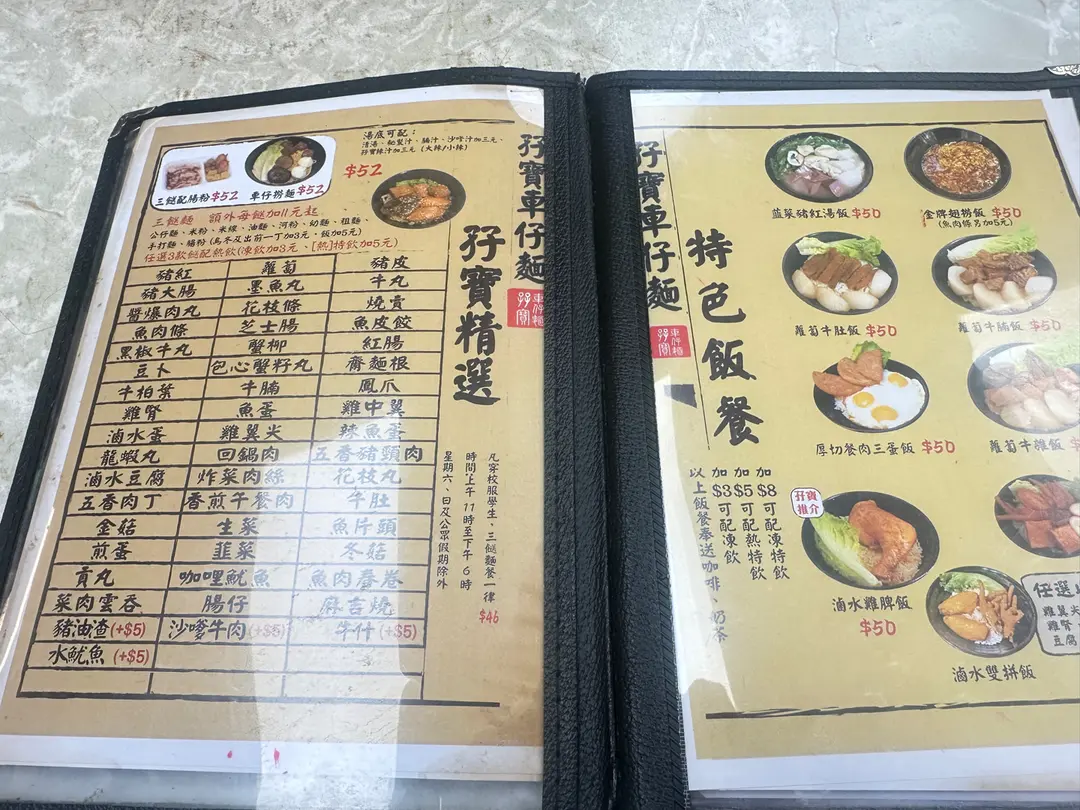 湯底可配：
清湯、秘製汁、腩汁、沙嗲汁加三元、
孖寶辣汁加三元（大辣/小辣）
$52
三餸配腸粉$52　車仔撈麵$52
三餸麵　額外每餸加11元起
公仔麵、米粉、米線、油麵、河粉、幼麵、粗麵、
手打麵、貓粉（烏冬及出前一丁加3元、飯加5元）
任選3款餸配熱飲（凍飲加3元、[熱]特飲加5元）
豬紅　蘿蔔　豬皮
豬大腸　墨魚丸　牛丸
醬爆肉丸　花枝條　燒賣
魚肉條　芝士腸　魚皮餃
黑椒牛丸　蟹柳　紅腸
豆卜　包心蟹籽丸　齋麵根
牛柏葉　牛腩　鳳爪
雞腎　魚蛋　雞中翼
滷水蛋　雞翼尖　辣魚蛋
龍蝦丸　回鍋肉　五香豬頸肉
滷水豆腐　炸菜肉絲　花枝丸
五香肉丁　香煎午餐肉　牛肚
金菇　生菜　魚片頭
煎蛋　韮菜　冬菇
貢丸　咖哩魷魚　魚肉春卷
菜肉雲吞　腸仔　麻吉燒
豬油渣(+$5)　沙嗲牛肉(+$5)　牛什(+$5)
水魷魚(+$5)
孖寶車仔麵
孖寶
車仔麵
孖寶精選
凡穿校服學生，三餸麵餐一律$46
時間：上午11時至下午6時
星期六、日及公眾假期除外
孖寶車仔麵
孖寶
車仔麵
特色飯餐
加$8可配凍特飲
加$5可配熱特飲
加$3可配凍飲
以上飯餐奉送咖啡、奶茶
韮菜豬紅湯飯 $50
金牌翅撈飯 $50
(魚肉條另加5元)
蘿蔔牛肚飯 $50
蘿蔔牛腩飯 $50
厚切餐肉三蛋飯 $50
蘿蔔牛雜飯
孖寶
推介
滷水雞脾飯
$50
滷水雙拼飯
任選
雞翼尖
雞腎
豆腐